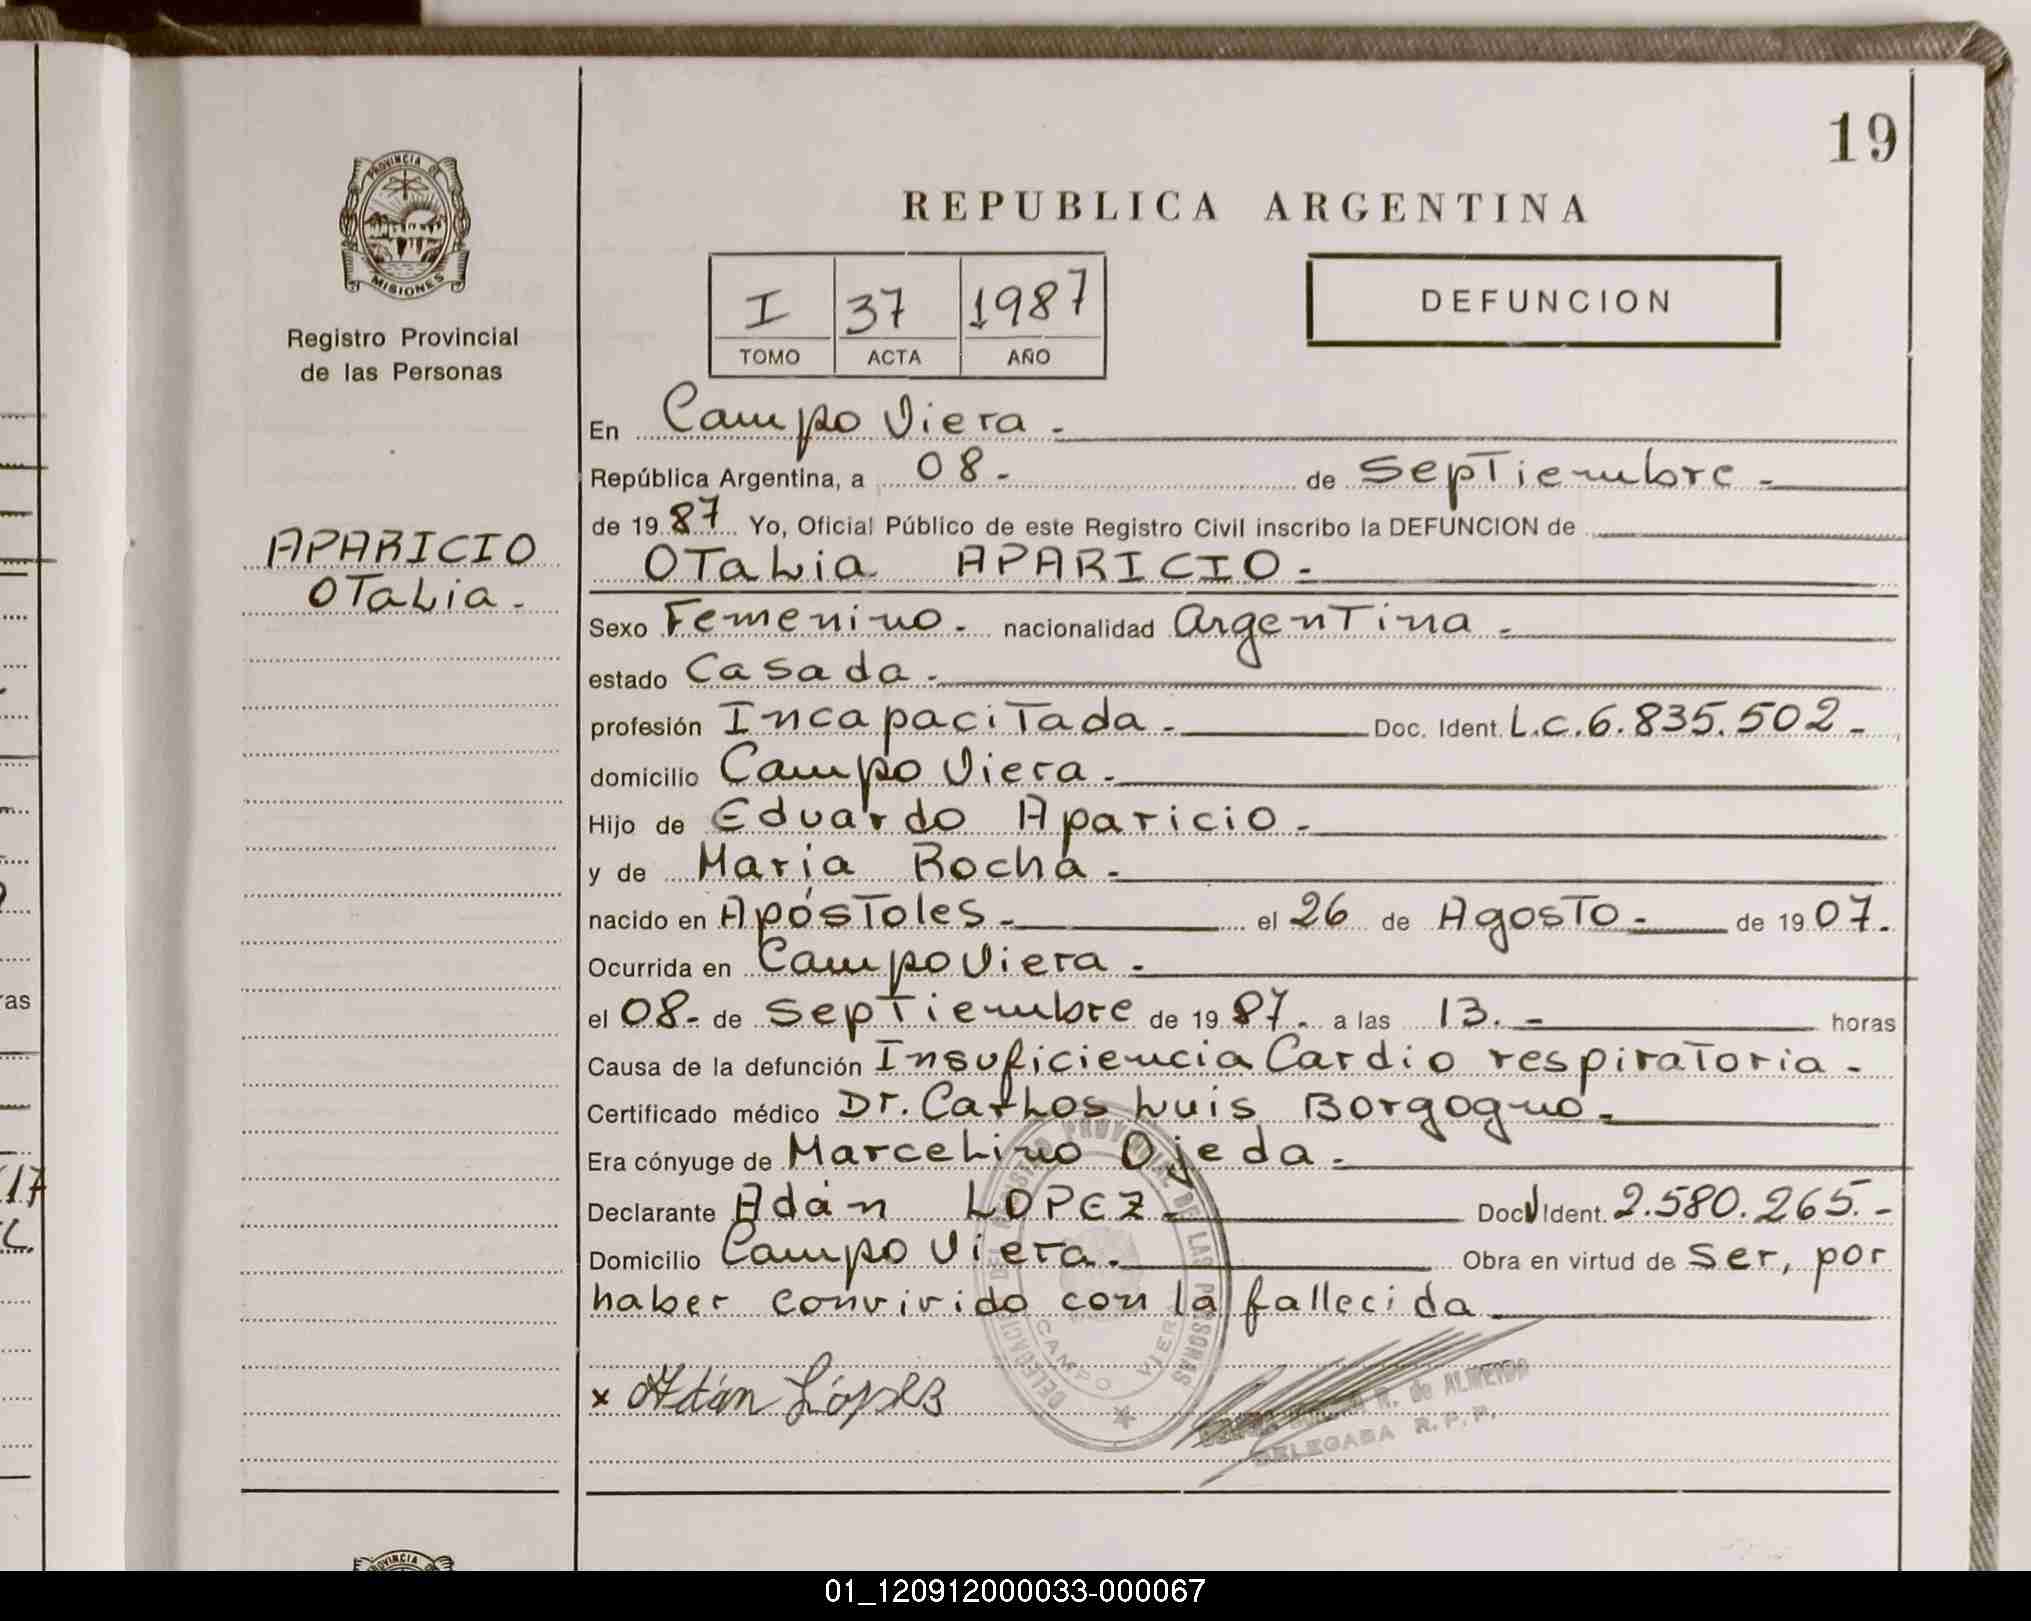 19
PROVINCIA DE
MISIONES
Registro Provincial
de las Personas
REPUBLICA ARGENTINA
I 37 1987
TOMO ACTA AÑO
DEFUNCION
APARICIO
OTaLia.
En Campo Viera.
República Argentina, a 08- de Septiembre-
de 1987 Yo, Oficial Público de este Registro Civil inscribo la DEFUNCION de
OTaLia APARICIO-
Sexo Femenino. nacionalidad Argentina-
estado Casada.
profesión Incapacitada. Doc. Ident. L.C. 6.835.502-
domicilio Campo Viera.
Hijo de Eduardo Aparicio-
y de María Rocha.
nacido en Apóstoles- el 26 de Agosto- de 1907.
Ocurrida en Campo Viera-
el 08- de Septiembre de 1987. a las 13.- horas
Causa de la defunción Insuficiencia Cardio respiratoria.
Certificado médico Dr. Carlos Luis Borgogno-
Era cónyuge de Marcelino Ojeda-
Declarante Adán LOPEZ- Doc Ident. 2.580.265.-
Domicilio Campo Viera. Obra en virtud de ser, por
haber convivido con la fallecida
x Adán López
DELEGACION DEL REGISTRO PROVINCIAL DE LAS PERSONAS
CAMPO VIERA
R. de ALMEYDA
DELEGADA R.P.P.
PROVINCIA
ras
17
01_120912000033-000067